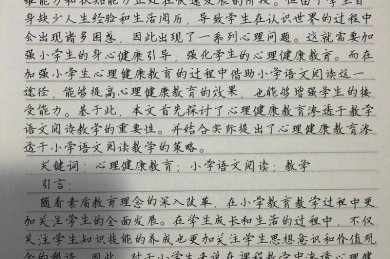 能力和认知能力正处在快速发展的阶段。但由于学生自
身缺少人生经验和生活阅历，导致学生在认识世界的过程中
会出现诸多困惑，因此出现了一系列心理问题。这就需要加
强小学生的身心健康引导，强化学生的心理健康教育。而在
加强小学生心理健康教育的过程中借助小学语文阅读这一
途径，能够提高心理健康教育的效果，也能够增强学生的接
受能力。基于此，本文首先探讨了心理健康教育渗透于教学
语文阅读教学的重要性。并结合实际提出了心理健康教育渗
透于小学语文阅读教学的策略。
关键词：心理健康教育；小学语文阅读；教学
引言：
随着素质教育理念的深入改革，在小学教育教学过程中更
加关注学生的全面发展。在学生成长和生活的过程中，不仅
关注学生知识技能的养成也更加关注学生思想意识和价值观
念的塑造。因此，对于小学生来说在课程教学中渗透心理健